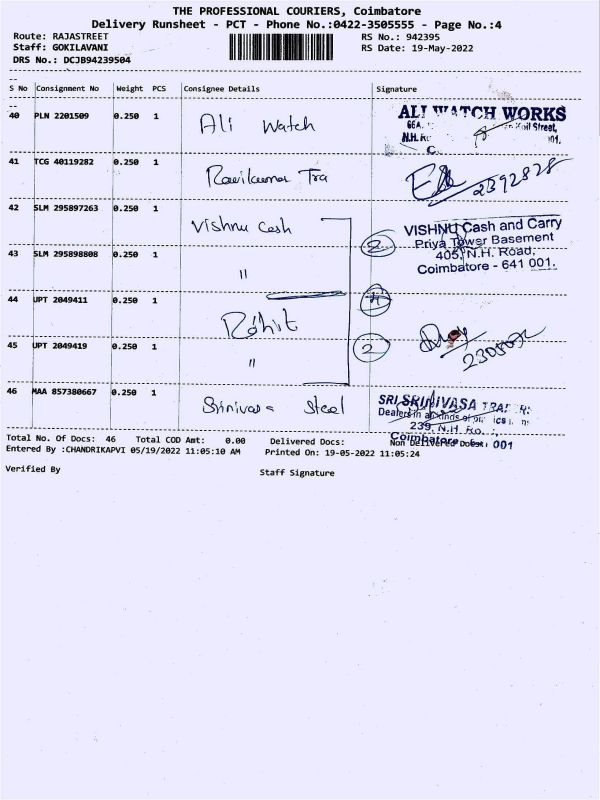 THE PROFESSIONAL COURIERS, Coimbatore
Delivery Runsheet - PCT - Phone No.:0422-3505555 - Page No.:4
Route: RAJASTREET
RS No.: 942395
Staff: GOKILAVANI
RS Date: 19-May-2022
DRS No.: DCJB94239504
S No Consignment No Weight PCS Consignee Details Signature
40 PLN 2201509 0.250 1 Ali Watch
ALI WATCH WORKS
66A,
Street,
N.H.
41 TCG 40119282 0.250 1 Ravikumar Tra
2392828
42 SLM 295897263 0.250 1 Vishnu Cash
2
VISHNU Cash and Carry
Priya Tower Basement
405, N.H. Road,
Coimbatore - 641 001.
43 SLM 295898808 0.250 1 "
44 UPT 2049411 0.250 1 Rohit
45 UPT 2049419 0.250 1 "
2
46 MAA 857380667 0.250 1 Srinivasa Steel
SRI SRINIVASA
Dealers in all kinds of
239, N.H.
Coimbatore 001
Total No. Of Docs: 46 Total COD Amt: 0.00 Delivered Docs: Non Delivered Docs:
Entered By :CHANDRIKAPVI 05/19/2022 11:05:10 AM Printed On: 19-05-2022 11:05:24
Verified By Staff Signature